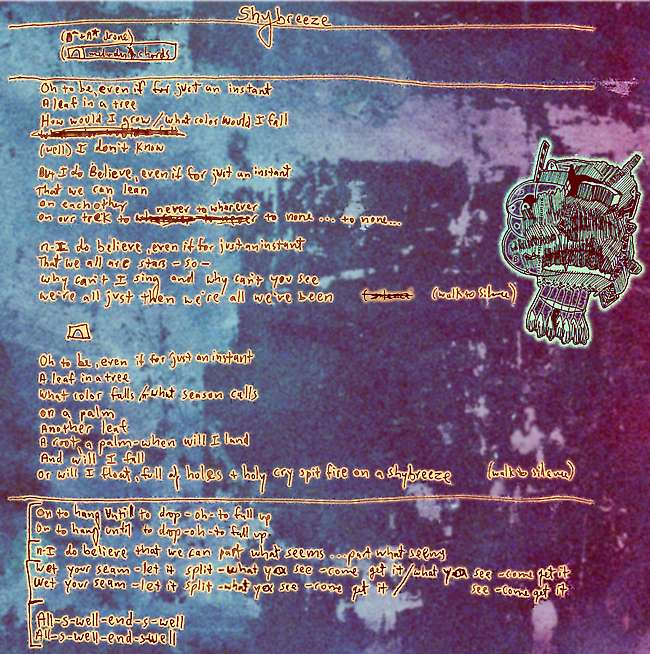 Shybreeze
drone)
chords
Oh to be, even if for just an instant
A leaf in a tree
How would I grow/what color would I fall
(well) I don't know
But I do believe, even if for just an instant
That we can lean
on each other never to wherever
on our trek to to none ... to none...
n-I do believe, even if for just an instant
That we all are stars - so -
why can't I sing and why can't you see
we're all just then we're all we've been (walk to silence)
Oh to be, even if for just an instant
A leaf in a tree
What color falls/what season calls
on a palm
Another leaf
A root a palm-when will I land
And will I fall
Or will I float, full of holes + holy cry spit fire on a shybreeze (walk to silence)
On to hang until to drop-oh-to fall up
On to hang until to drop-oh-to fall up
n-I do believe that we can part what seems ...part what seems
Wet your seam-let it split-what you see-come get it/what you see-come get it
Wet your seam-let it split-what you see-come get it/ see-come get it
All-s-well-end-s-well
All-s-well-end-s-well